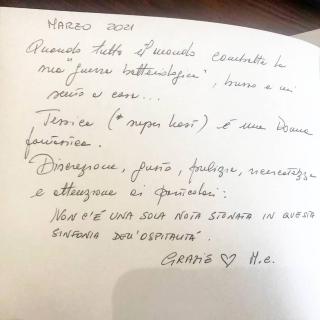 MARZO 2021
Quando tutto il mondo combatte la
sua "guerra batteriologica", busso e mi
sento a casa...
Jessica (* super host) è una Donna
fantastica.
Discrezione, gusto, pulizia, ricercatezza
e attenzione ai particolari:
NON C'È UNA SOLA NOTA STONATA IN QUESTA
SINFONIA DELL'OSPITALITÀ.
GRAZIE ♡ M.C.